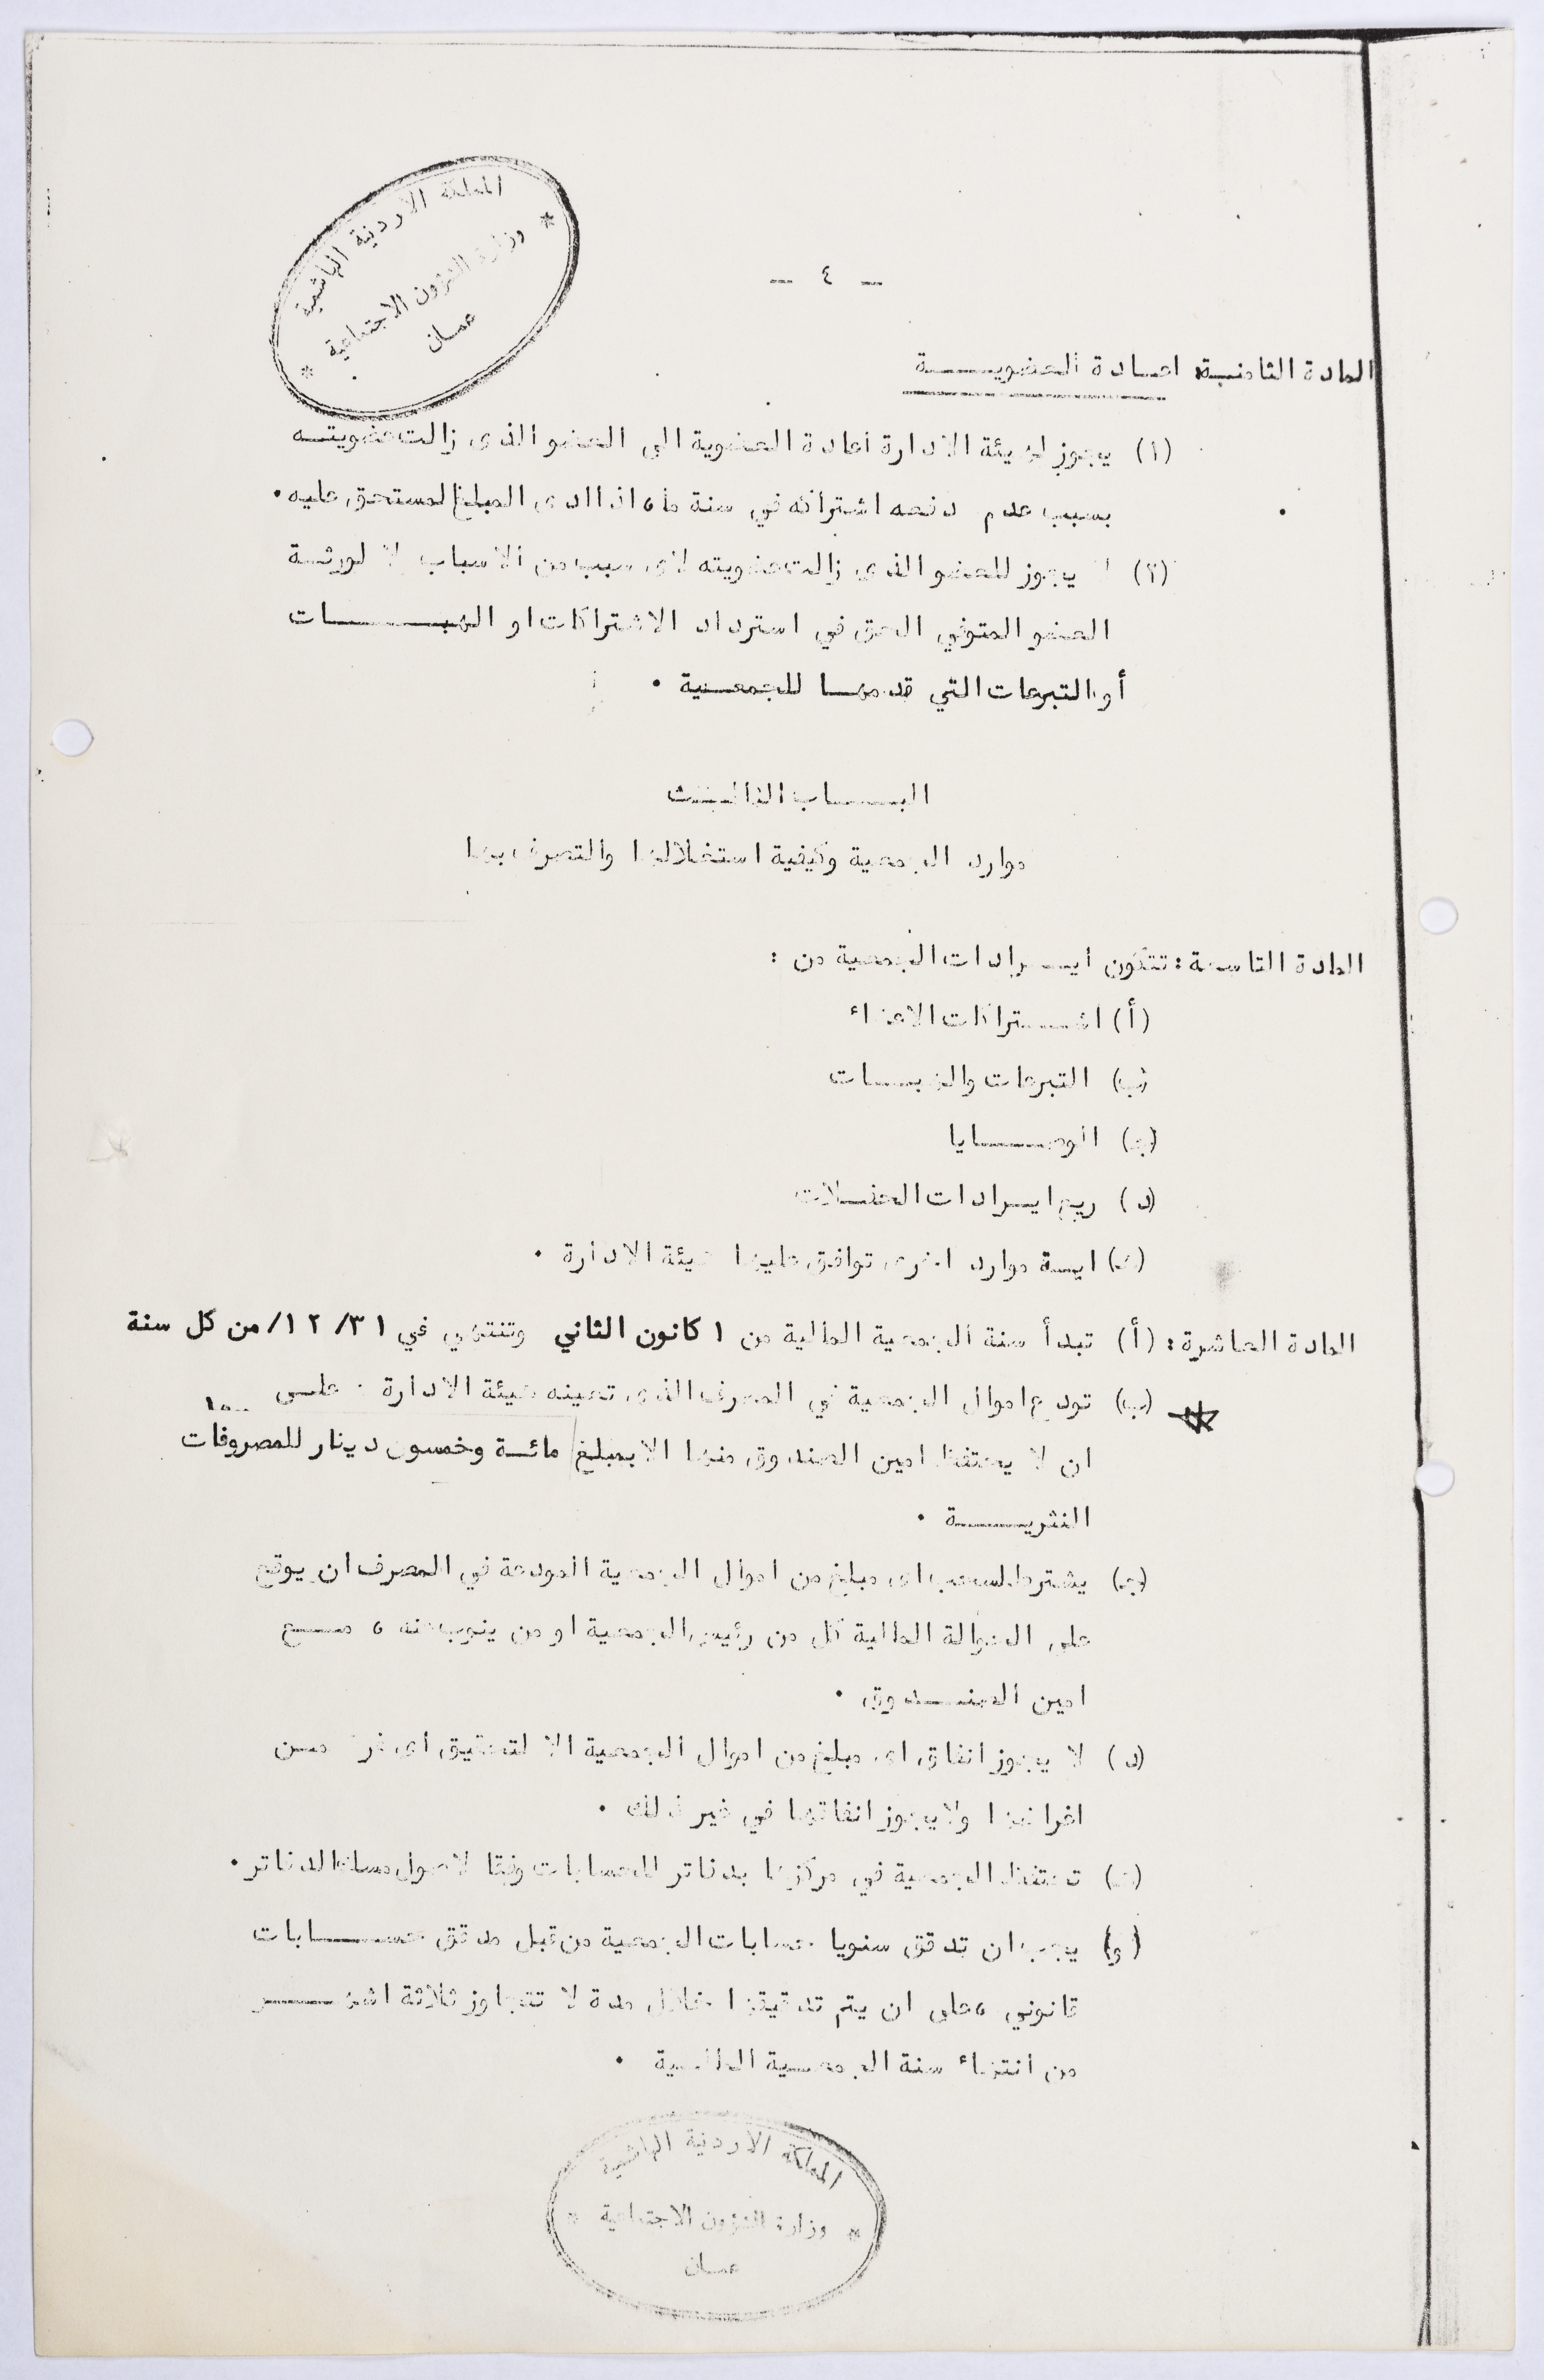 المملكة الاردنية الهاشمية
وزارة الشؤون الاجتماعية
عمان
- ٤ -
المادة الثامنة: اعادة العضوية
(١) يجوز لهيئة الادارة اعادة العضوية الى العضو الذى زالت عضويته
بسبب عدم دفعه اشتراكه في سنة ما ، اذا ادى المبلغ المستحق عليه .
(٢) لا يجوز للعضو الذى زالت عضويته لاى سبب من الاسباب لا لورثة
العضو المتوفي الحق في استرداد الاشتراكات او الهبات
أو التبرعات التي قدمها للجمعية .
الباب الثالث
موارد الجمعية وكيفية استغلالها والتصرف بها
المادة التاسعة : تتكون ايرادات الجمعية من :
(أ) اشتراكات الاعضاء
(ب) التبرعات والهبات
(ج) الوصايا
(د) ريع ايرادات الحفلات
(هـ) اية موارد اخرى توافق عليها هيئة الادارة .
المادة العاشرة : (أ) تبدأ سنة الجمعية المالية من ١ كانون الثاني وتنتهي في ٣١/١٢/ من كل سنة
(ب) تودع اموال الجمعية في المصرف الذى تعينه هيئة الادارة . على
ان لا يحتفظ امين الصندوق منها الا بمبلغ مائة وخمسون دينار للمصروفات
النثرية .
(ج) يشترط لسحب اى مبلغ من اموال الجمعية المودعة في المصرف ان يوقع
على الحوالة المالية كل من رئيس الجمعية او من ينوب عنه ، مع
امين الصندوق .
(د) لا يجوز انفاق اى مبلغ من اموال الجمعية الا لتحقيق اى غرض من
اغراضها ولا يجوز انفاقها في غير ذلك .
(هـ) تحتفظ الجمعية في مركزها بدفاتر للحسابات وفقا لاصول مسك الدفاتر .
(و) يجب ان تدقق سنويا حسابات الجمعية من قبل مدقق حسابات
قانوني ، على ان يتم تدقيقها خلال مدة لا تتجاوز ثلاثة اشهر
من انتهاء سنة الجمعية المالية .
المملكة الاردنية الهاشمية
وزارة الشؤون الاجتماعية
عمان